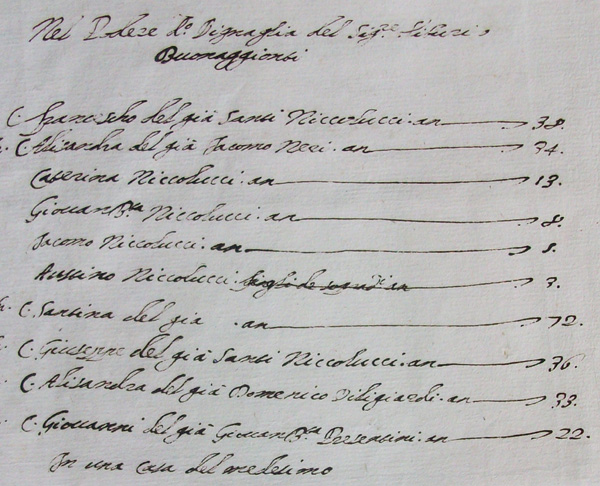 Nel Podere d. Vignaglia del Sig.re Liturio
Buonaggionti
C. Francischo del già Santi Niccolucci. an 38.
C. Alisandra del già Jacomo Neri. an 34.
Caterina Niccolucci. an 13.
Giovan Bta Niccolucci. an 8.
Jacomo Niccolucci. an 5.
Austino Niccolucci. 3.
C. Santina del già . an 72.
C. Giuseppe del già Santi Niccolucci. an 36.
C. Alisandra del già Domenico Diligiardi. an 33.
C. Giovanni del già Giovan Bta Presentini. an 22.
In una casa del medesimo